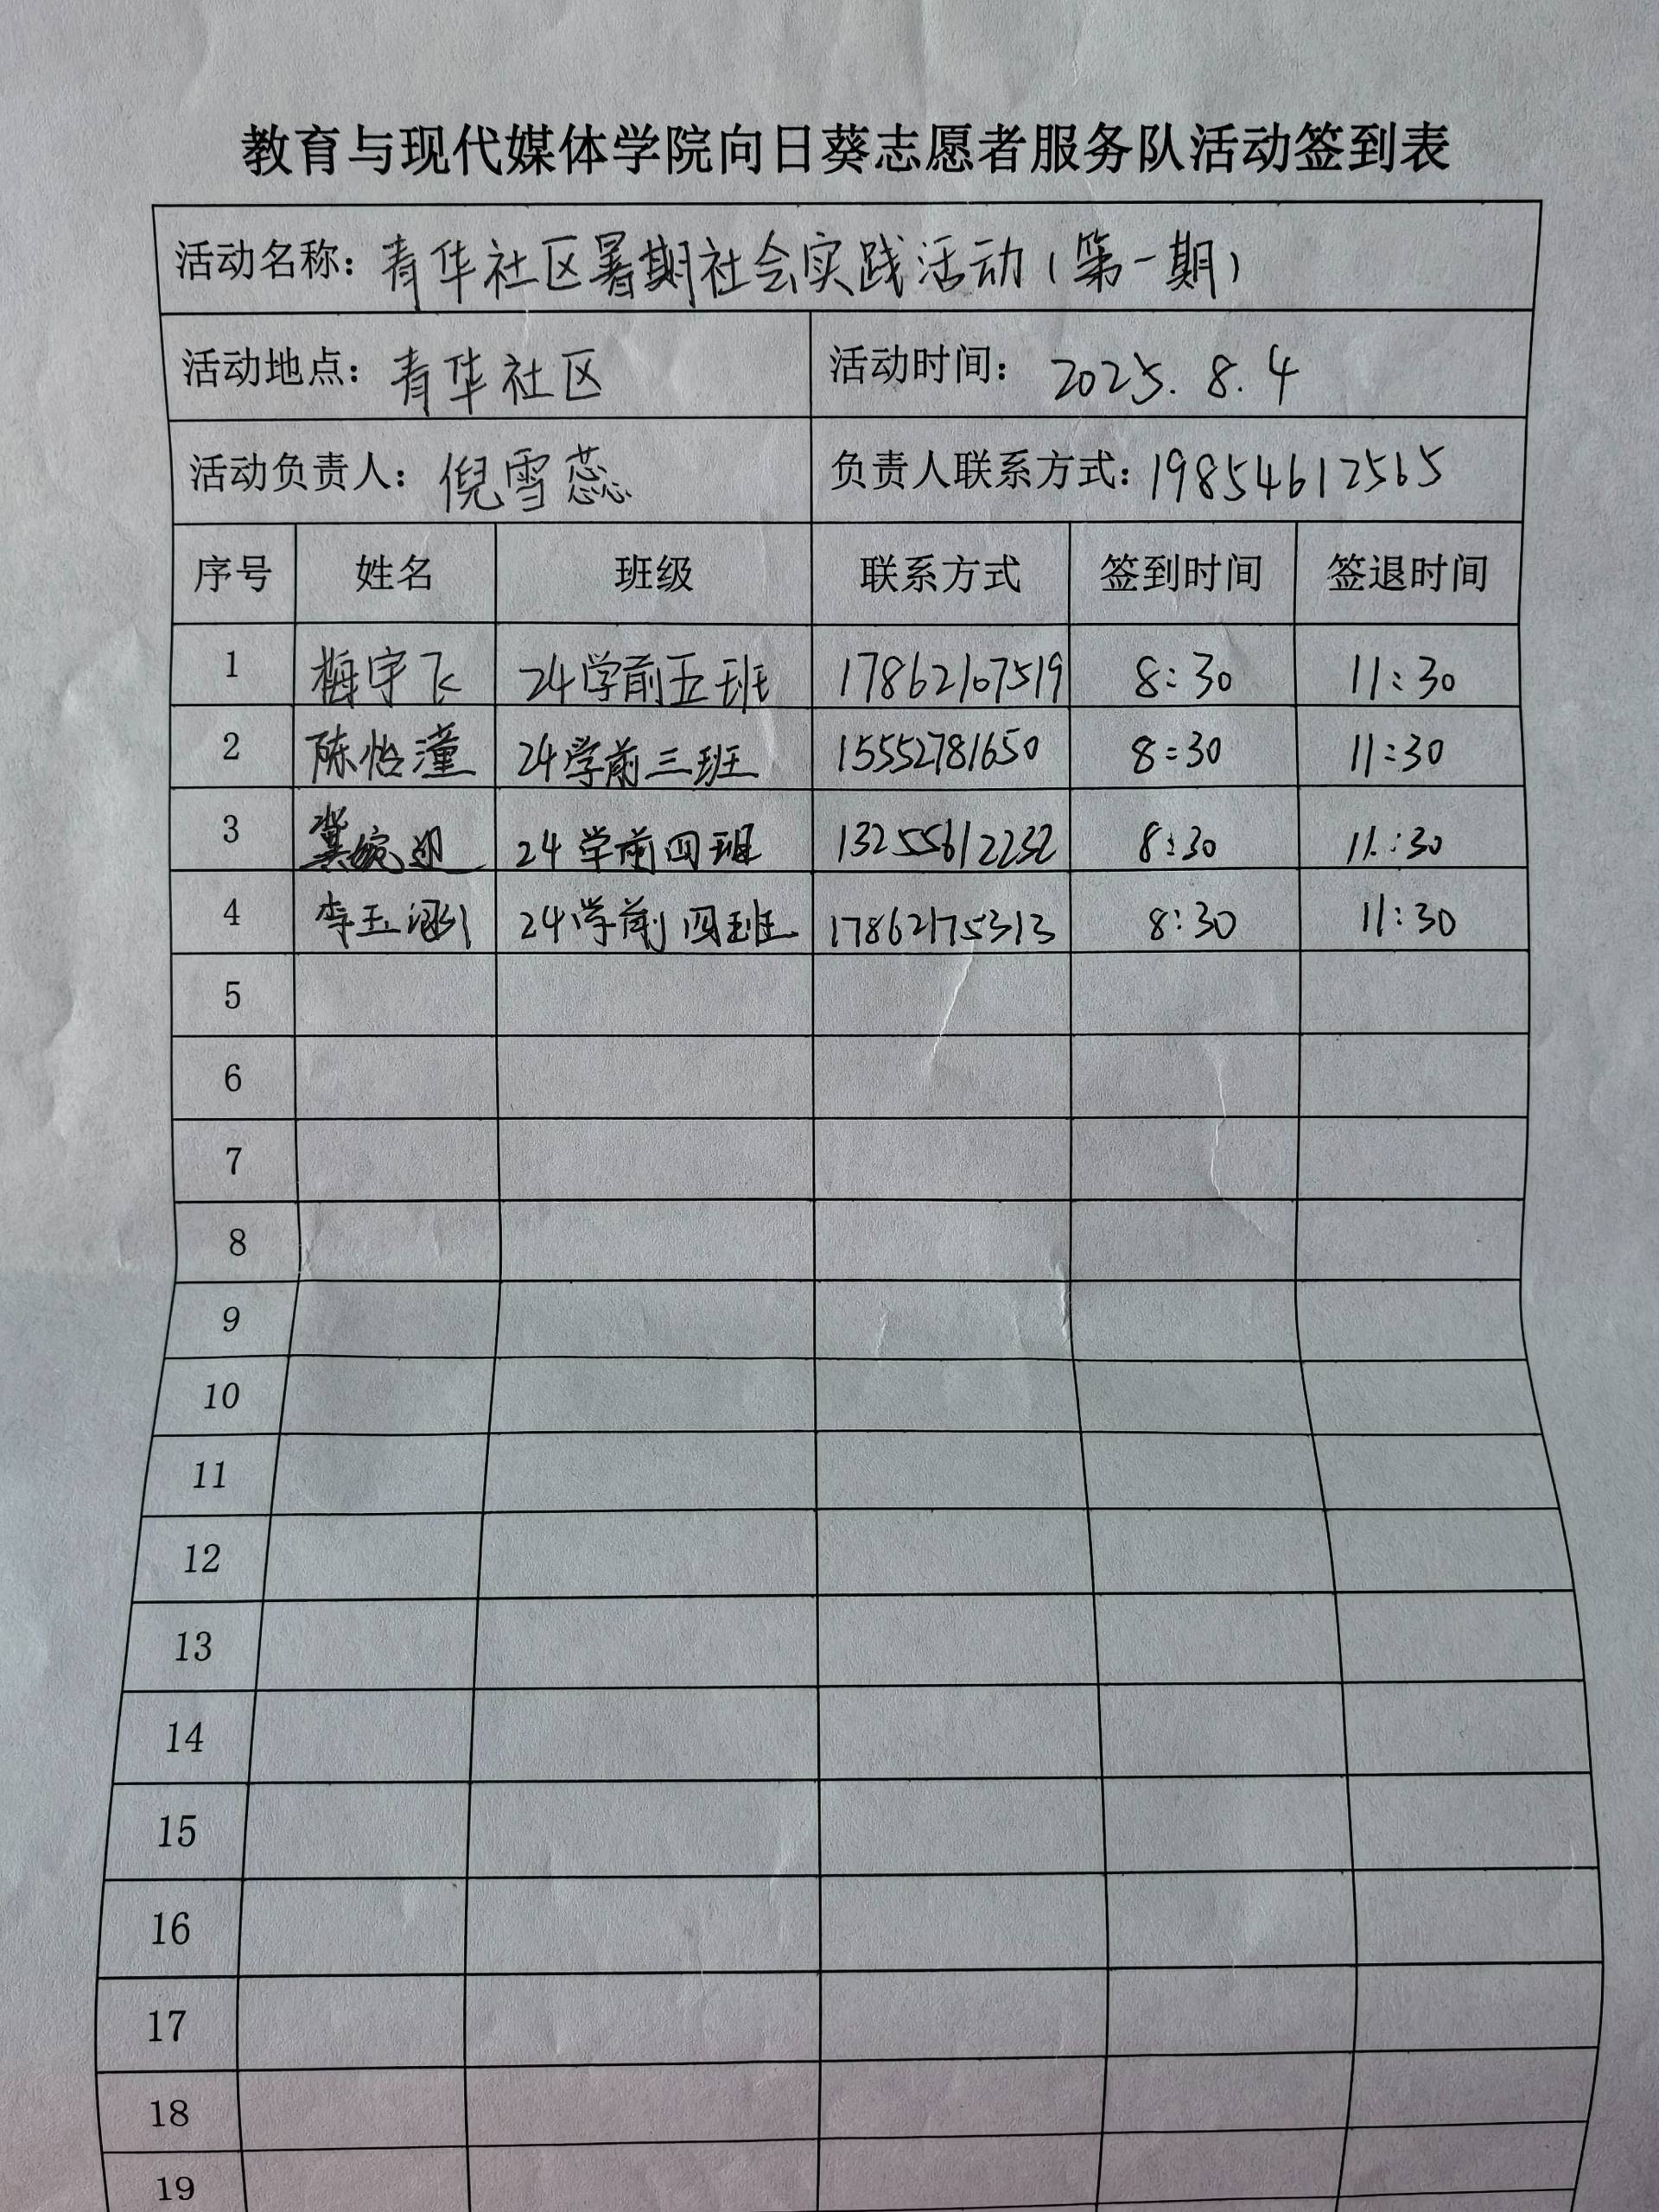 教育与现代媒体学院向日葵志愿者服务队活动签到表
活动名称：青华社区暑期社会实践活动（第一期）
活动地点：青华社区 活动时间：2025.8.4
活动负责人：倪雪蕊 负责人联系方式：19854612565
序号 姓名 班级 联系方式 签到时间 签退时间
1 梅宇飞 24学前五班 17862107519 8:30 11:30
2 陈怡潼 24学前三班 15552781650 8:30 11:30
3 冀婉迎 24学前四班 13255612232 8:30 11:30
4 李玉涵 24学前四班 17862175313 8:30 11:30
5
6
7
8
9
10
11
12
13
14
15
16
17
18
19